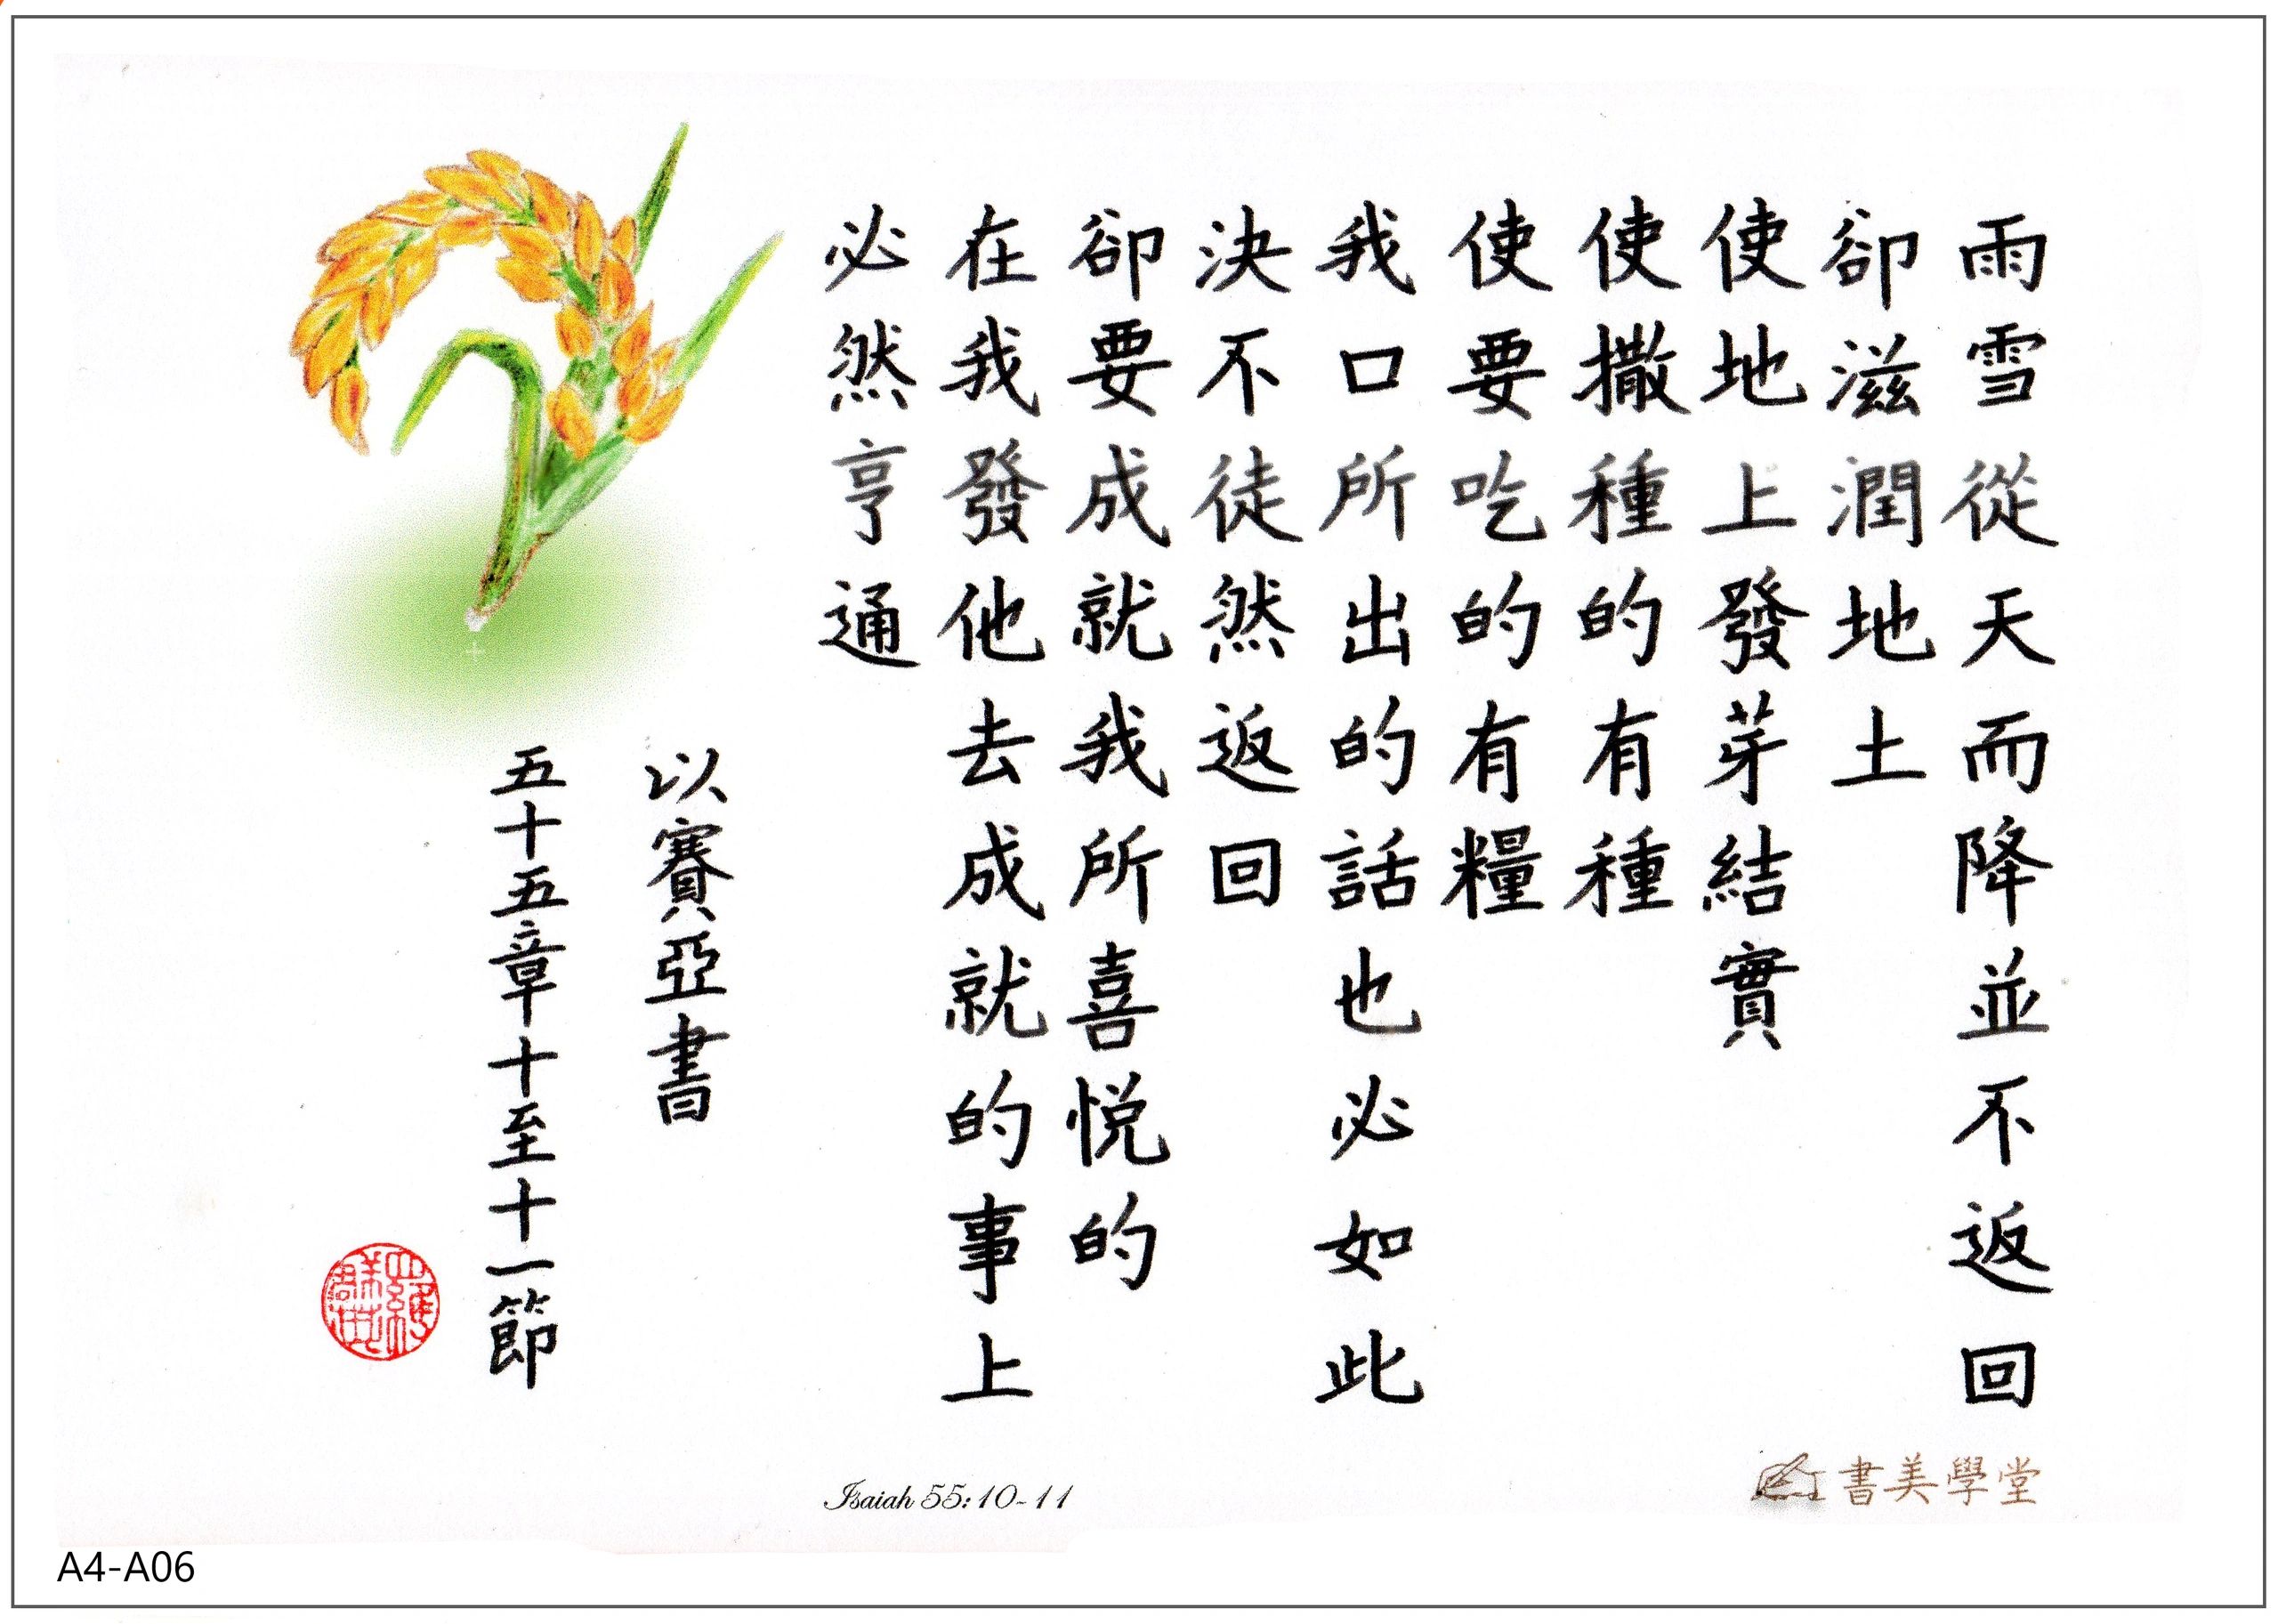 雨雪從天而降並不返回
卻滋潤地土
使地上發芽結實
使撒種的有種
使要吃的有糧
我口所出的話也必如此
決不徒然返回
卻要成就我所喜悅的
在我發他去成就的事上
必然亨通
以賽亞書
五十五章十至十一節
Isaiah 55:10-11
書美學堂
A4-A06